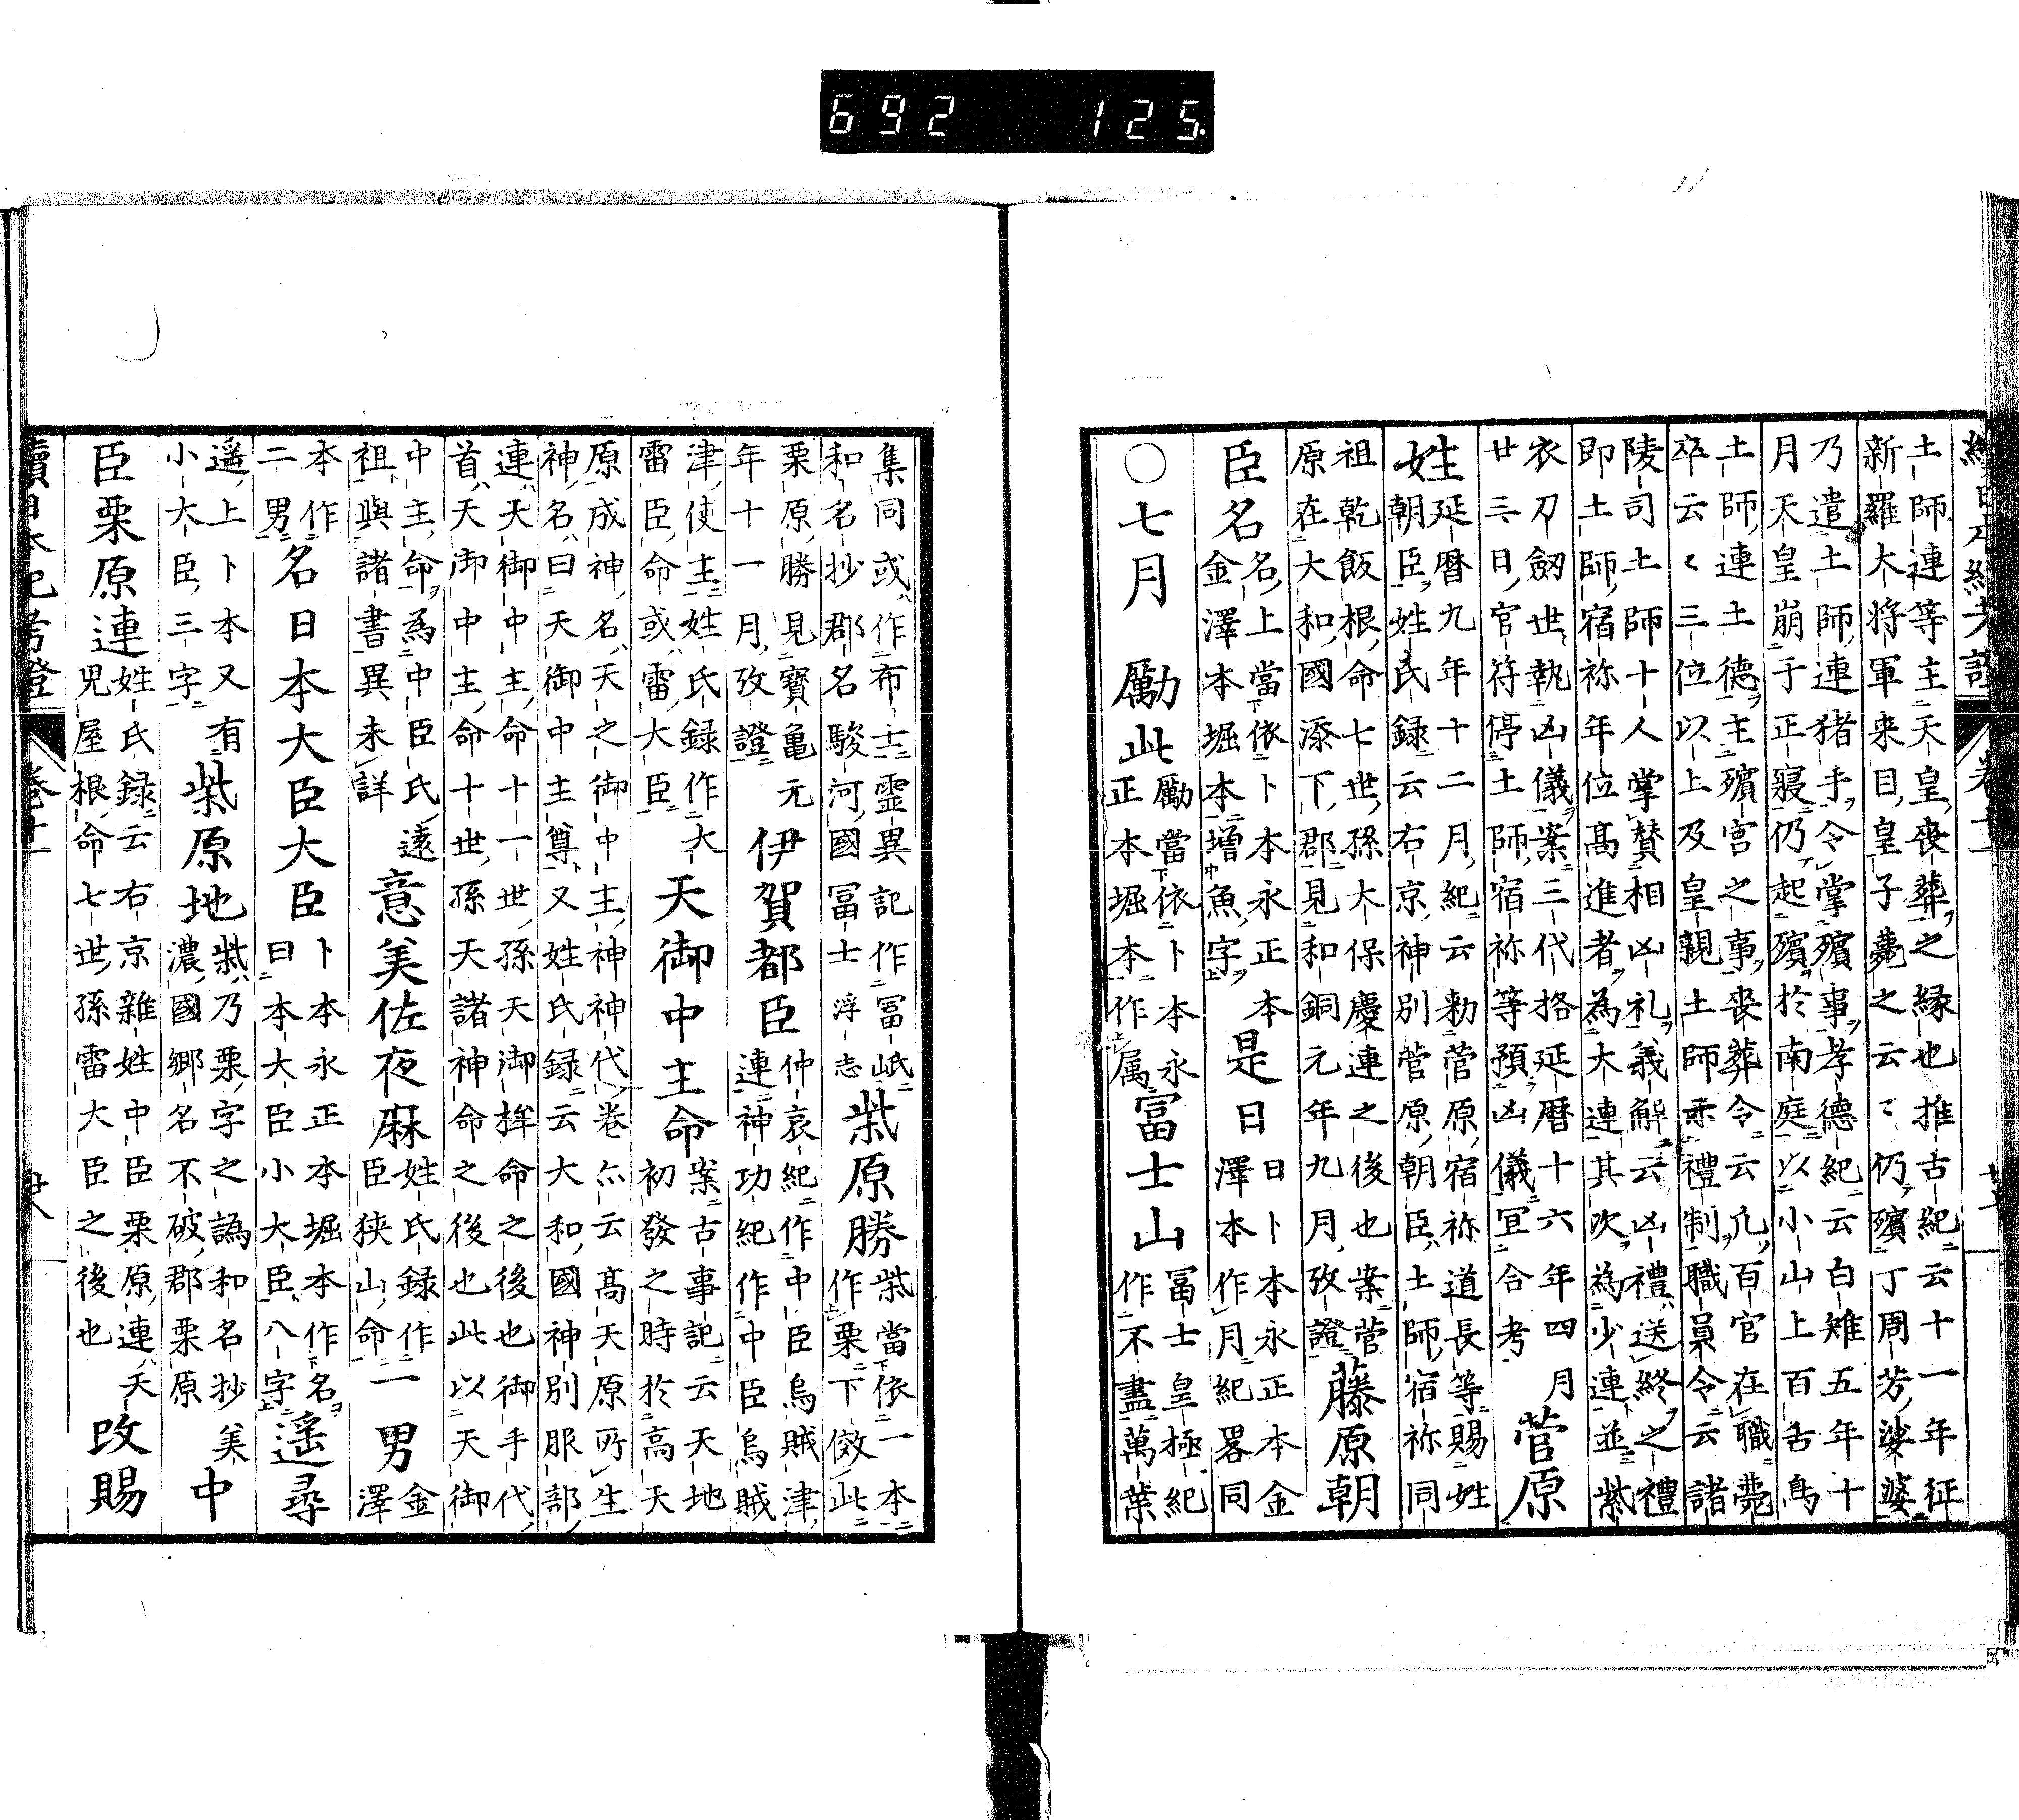 692 125.
土師連等主天皇喪葬之縁也推古紀云十一年征
新羅大將軍来目皇子薨之云〻仍殯丁周芳娑婆
乃遣土師連猪手令掌殯事孝德紀云白雉五年十
月天皇崩于正寢仍起殯於南庭以小山上百舌鳥
土師連土德主殯宮之事喪葬令云凡百官在職薨
卒云〻三位以上及皇親土師示禮制職員令云諸
陵司土師十人掌賛相凶礼義解云凶禮送終之禮
即土師宿祢年位髙進者為大連其次為少連並紫
衣刀劔世執凶儀案三代格延暦十六年四月
廿三日官符停土師宿祢等預凶儀冝合考
菅原
姓
延暦九年十二月紀云勅菅原宿祢道長等賜姓
朝臣姓氏録云右京神別菅原朝臣土師宿祢同
祖乾飯根命七世孫大保慶連之後也案菅
原在大和國添下郡見和銅元年九月攷證
藤原朝
臣名
名上當依卜本永正本
金澤本堀本増魚字
是日
日卜本永正本金
澤本作月紀畧同
〇七月
勵此
勵當依卜本永
正本堀本作属
富士山
冨士皇極紀
作不盡萬葉
集同或作布士靈異記作冨岻
和名抄郡名駿河國冨士浮志
柴原勝
柴當依一本
作栗下傚此
栗原勝見寶亀元
年十一月攷證
伊賀都臣
仲哀紀作中臣烏賊津
連神功紀作中臣烏賊
津使主姓氏録作大
雷臣命或雷大臣
天御中主命
案古事記云天地
初發之時於高天
原成神名天之御中主神神代卷亦云髙天原所生
神名曰天御中主尊又姓氏録云大和國神別服部
連天御中主命十一世孫天御桙命之後也御手代
首天御中主命十世孫天諸神命之後也此以天御
中主命為中臣氏遠
祖與諸書異未詳
意美佐夜麻
姓氏録作
臣狭山命
一男
金澤
本作
二男
名日本大臣大臣
卜本永正本堀本作名
曰本大臣小大臣八字
遥尋
遥上卜本又有
小大臣三字
柴原地
柴乃栗字之譌和名抄美
濃國郷名不破郡栗原
中
臣栗原連
姓氏録云右京雜姓中臣栗原連天
兒屋根命七世孫雷大臣之後也
改賜